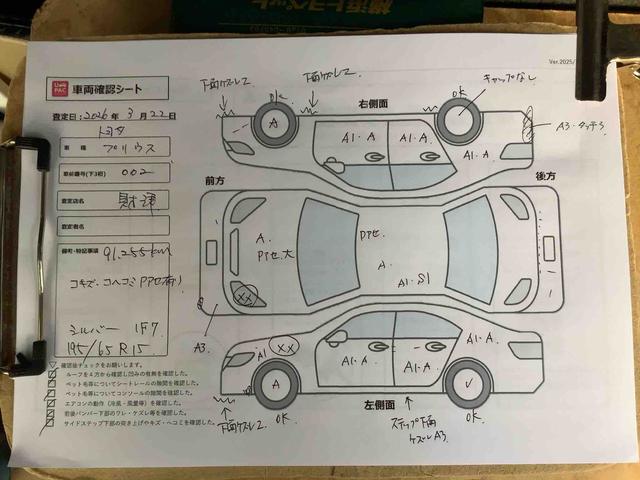 Ver.2025/
UcarPAC
車両確認シート
査定日: 2026 年 3 月 22 日
トヨタ
車種 プリウス
車台番号(下3桁) 002
査定店名
査定者名
備考・特記事項 91.255km
コキズ・コヘコミ PP セ有り
シルバー 1F7
195/65 R15
確認後チェックをお願いします。
ルーフを4方から確認し凹みの有無を確認した。
ペット毛等についてシートレールの隙間を確認した。
ペット毛等についてコンソールの隙間を確認した。
エアコンの動作(冷風・風量等)を確認した。
前後バンパー下部のワレ・ケズレ等を確認した。
サイドステップ下部の突き上げやキズ・ヘコミを確認した。
下面ケズレ2
下面ケズレ2
OK
OK
キャップなし
右側面
A
A1・A
A1・A
A1・A
A3・タッチ3
前方
後方
A.
PPセ.大
PPセ.
A.
A1 S1
XX
A3
A1
XX
A1・A
A1・A
A1・A
A
✓
左側面
OK
OK
下面ケズレ2
ステップ下面
ケズレA3